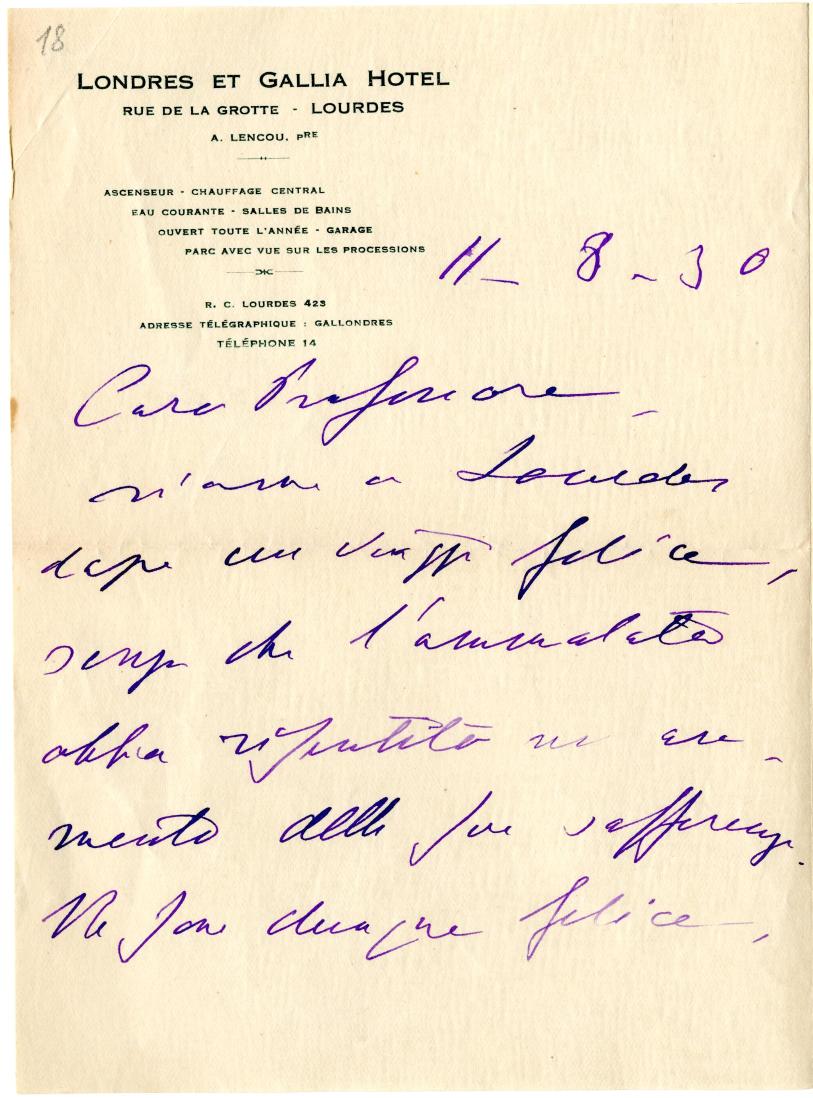 18
LONDRES ET GALLIA HOTEL
RUE DE LA GROTTE - LOURDES
A. LENCOU, PRE
ASCENSEUR - CHAUFFAGE CENTRAL
EAU COURANTE - SALLES DE BAINS
OUVERT TOUTE L'ANNÉE - GARAGE
PARC AVEC VUE SUR LES PROCESSIONS
11 - 8 - 30
R. C. LOURDES 423
ADRESSE TÉLÉGRAPHIQUE : GALLONDRES
TÉLÉPHONE 14
Caro Professore -
a Lourdes
dopo un viaggio felice,
senza che l'ammalato
abbia risentito un au-
mento delle sue sofferenze.
Ne sono dunque felice,